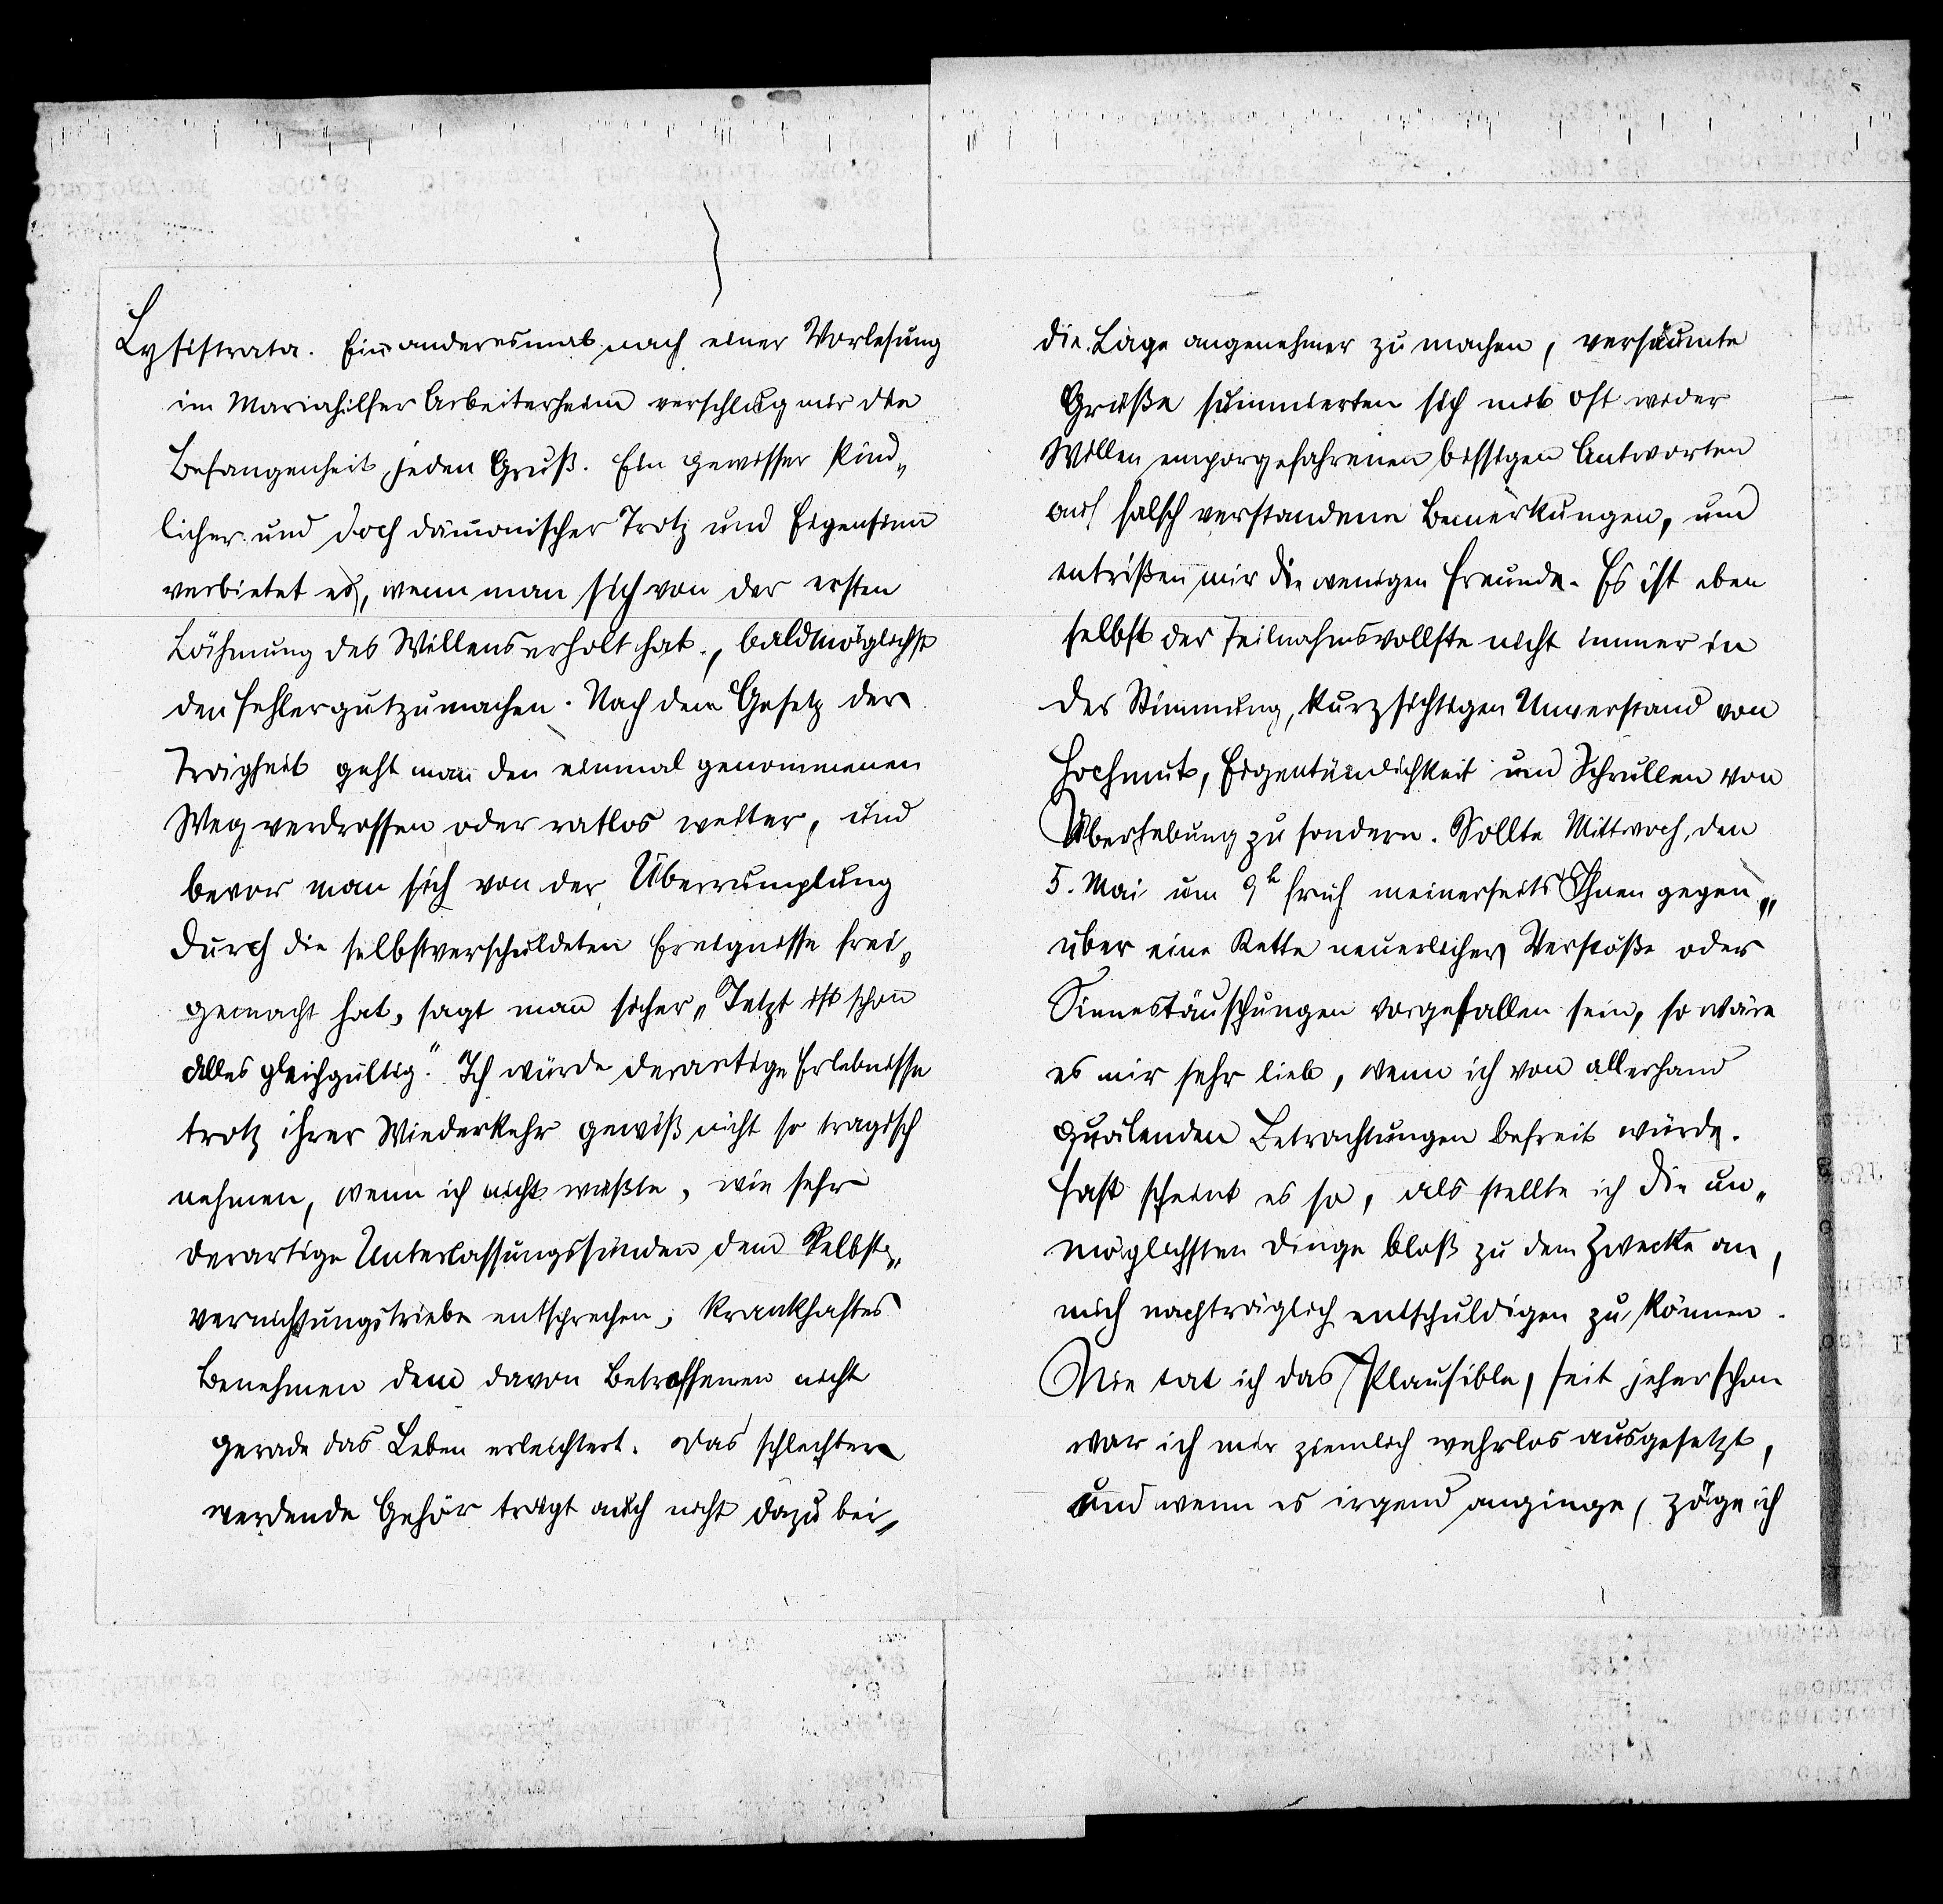 Lysistrata. Ein anderesmal nach einer Vorlesung
im Mariahilfer Arbeiterheim verschlug mir die
Befangenheit jeden Gruß. Ein gewisser kind„
licher und doch dämonischer Trotz und Eigensinn
verbietet es, wenn man sich von der ersten
Lähmung des Willens erholt hat, baldmöglichst
den Fehler gutzumachen. Nach dem Gesetz der
Trägheit geht man den einmal genommenen
Weg verdrossen oder ratlos weiter, und
bevor man sich von der Überrumplung
durch die selbstverschuldeten Ereignisse frei„
gemacht hat, sagt man sicher „Jetzt ist schon
alles gleichgültig." Ich würde derartige Erlebnisse
trotz ihrer Wiederkehr gewiß nicht so tragisch
nehmen, wenn ich nicht wüßte, wie sehr
derartige Unterlassungssünden dem Selbst„
vernichtungstriebe entsprechen, krankhaftes
Benehmen dem davon Betroffenen nicht
gerade das Leben erleichtert. Das schlechter
werdende Gehör trägt auch nicht dazu bei,
die Lage angenehmer zu machen, versäumte
Grüße summierten sich mit oft wider
Willen emporgefahrenen bissigen Antworten
auf falsch verstandene Bemerkungen, und
entrißen mir die wenigen Freunde. Es ist eben
selbst der Teilnahmsvollste nicht immer in
der Stimmung, kurzsichtigen Unverstand von
Hochmut, Eigentümlichkeit und Schrullen von
Überhebung zu sondern. Sollte Mittwoch, den
5. Mai um 9h früh meinerseits Ihnen gegen„
über eine Kette neuerlicher Verstöße oder
Sinnestäuschungen vorgefallen sein, so wäre
es mir sehr lieb, wenn ich von allerhand
quälenden Betrachtungen befreit würde.
Fast scheint es so, als stellte ich die un„
möglichsten Dinge bloß zu dem Zwecke an,
mich nachträglich entschuldigen zu können.
Nie tat ich das Plausible, seit jeher schon
war ich mir ziemlich wehrlos ausgesetzt,
und wenn es irgend anginge, zöge ich